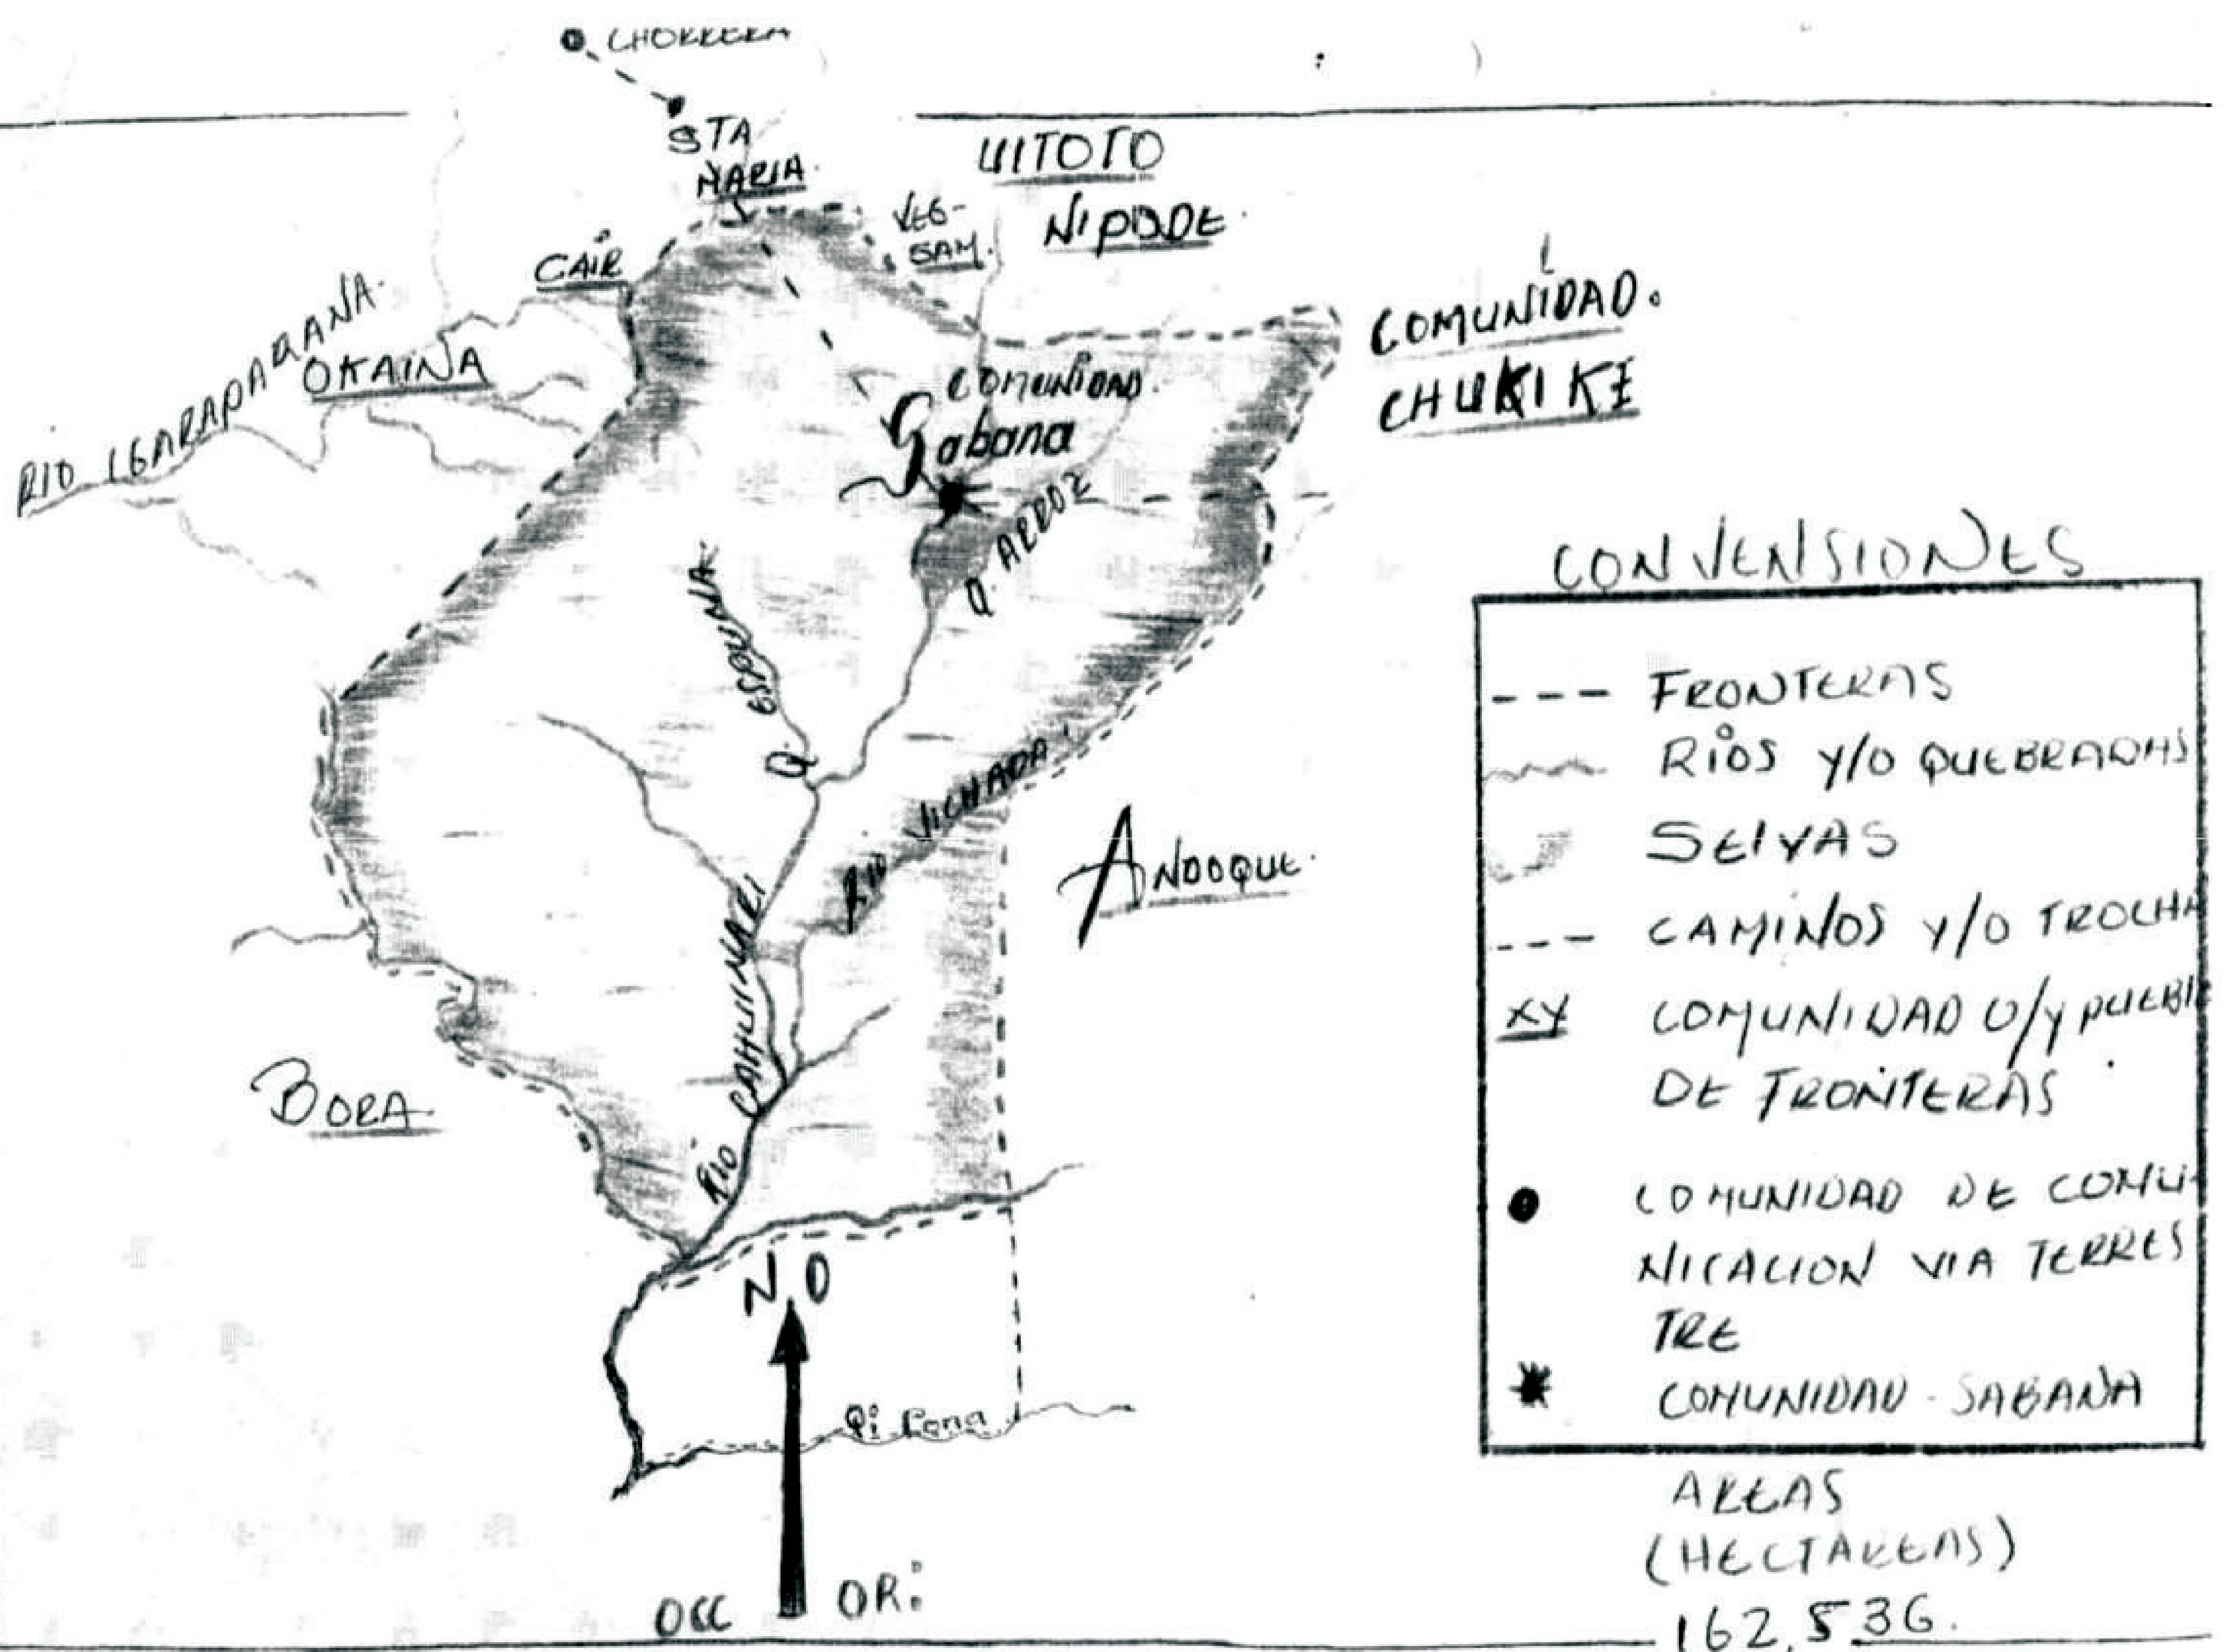 CHORRERA
STA
MARIA.
UITOTO
NIPODE.
VEG-
SAM.
CAIR
RIO IGARAPARANA.
OKAINA
COMUNIDAD.
CHUKIKE
COMUNIDAD.
Sabana
Q. ARROZ
Q. ESPUMA.
RIO VICHADA
ANDOQUE.
RIO CAHUINARI
BORA
N O
OCC
OR:
CONVENSIONES
FRONTERAS
RIOS Y/O QUEBRADAS
SELVAS
CAMINOS Y/O TROCHA
XY COMUNIDAD O/Y PUEBL
DE FRONTERAS
COMUNIDAD DE COMU-
NICACION VIA TERRES
TRE
COMUNIDAD - SABANA
AREAS
(HECTAREAS)
162,536.